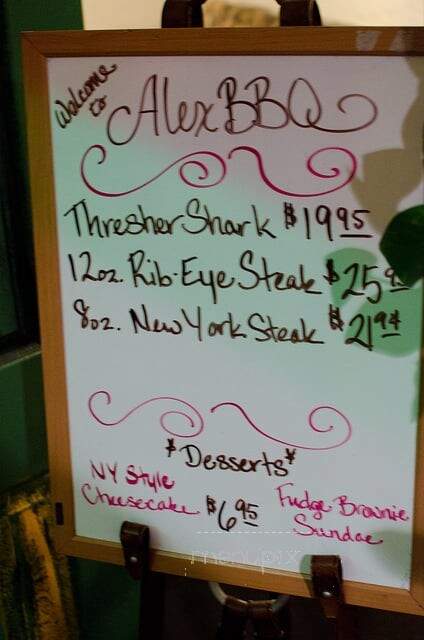 Welcome
to
Alex BBQ
Thresher Shark $19.95
12oz. Rib-Eye Steak $25.95
8oz. New York Steak $21.94
*Desserts*
NY Style
Cheesecake $6.95
Fudge Brownie
Sundae
menupix